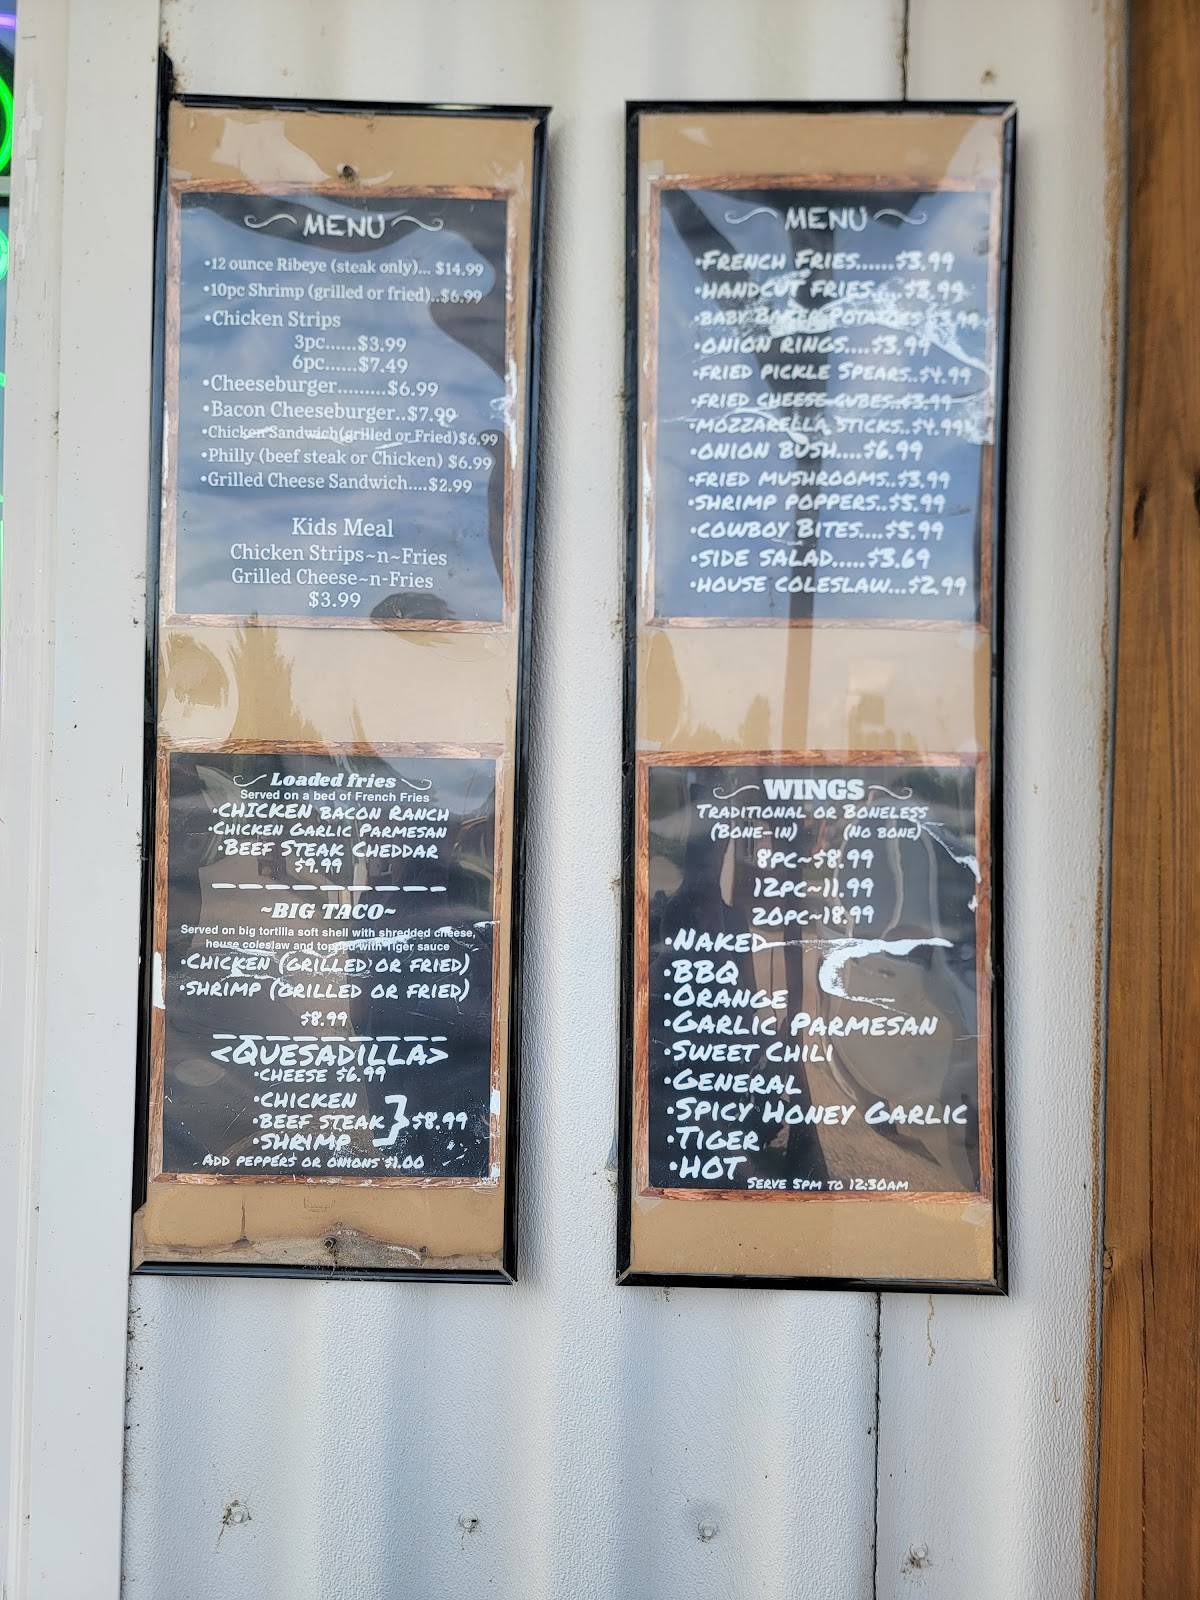 MENU
•12 ounce Ribeye (steak only)... $14.99
•10pc Shrimp (grilled or fried)..$6.99
•Chicken Strips
3pc......$3.99
6pc......$7.49
•Cheeseburger.........$6.99
•Bacon Cheeseburger..$7.99
•Chicken Sandwich(grilled or Fried)$6.99
•Philly (beef steak or Chicken) $6.99
•Grilled Cheese Sandwich....$2.99
Kids Meal
Chicken Strips~n~Fries
Grilled Cheese~n-Fries
$3.99
Loaded fries
Served on a bed of French Fries
•CHICKEN BACON RANCH
•CHICKEN GARLIC PARMESAN
•BEEF STEAK CHEDDAR
$9.99
~BIG TACO~
Served on big tortilla soft shell with shredded cheese,
house coleslaw and topped with Tiger sauce
•CHICKEN (GRILLED OR FRIED)
•SHRIMP (GRILLED OR FRIED)
$8.99
<QUESADILLA>
•CHEESE $6.99
•CHICKEN
•BEEF STEAK } $8.99
•SHRIMP
ADD PEPPERS OR ONIONS $1.00
MENU
•FRENCH FRIES......$3.99
•HANDCUT FRIES.....$3.99
•BABY BAKER POTATOES $3.99
•ONION RINGS....$3.99
•FRIED PICKLE SPEARS..$4.99
•FRIED CHEESE CUBES..$3.99
•MOZZARELLA STICKS..$4.99
•ONION BUSH....$6.99
•FRIED MUSHROOMS..$3.99
•SHRIMP POPPERS..$5.99
•COWBOY BITES....$5.99
•SIDE SALAD.....$3.69
•HOUSE COLESLAW...$2.99
WINGS
TRADITIONAL OR BONELESS
(BONE-IN) (NO BONE)
8PC~$8.99
12PC~11.99
20PC~18.99
•NAKED
•BBQ
•ORANGE
•GARLIC PARMESAN
•SWEET CHILI
•GENERAL
•SPICY HONEY GARLIC
•TIGER
•HOT
SERVE 5PM TO 12:30AM